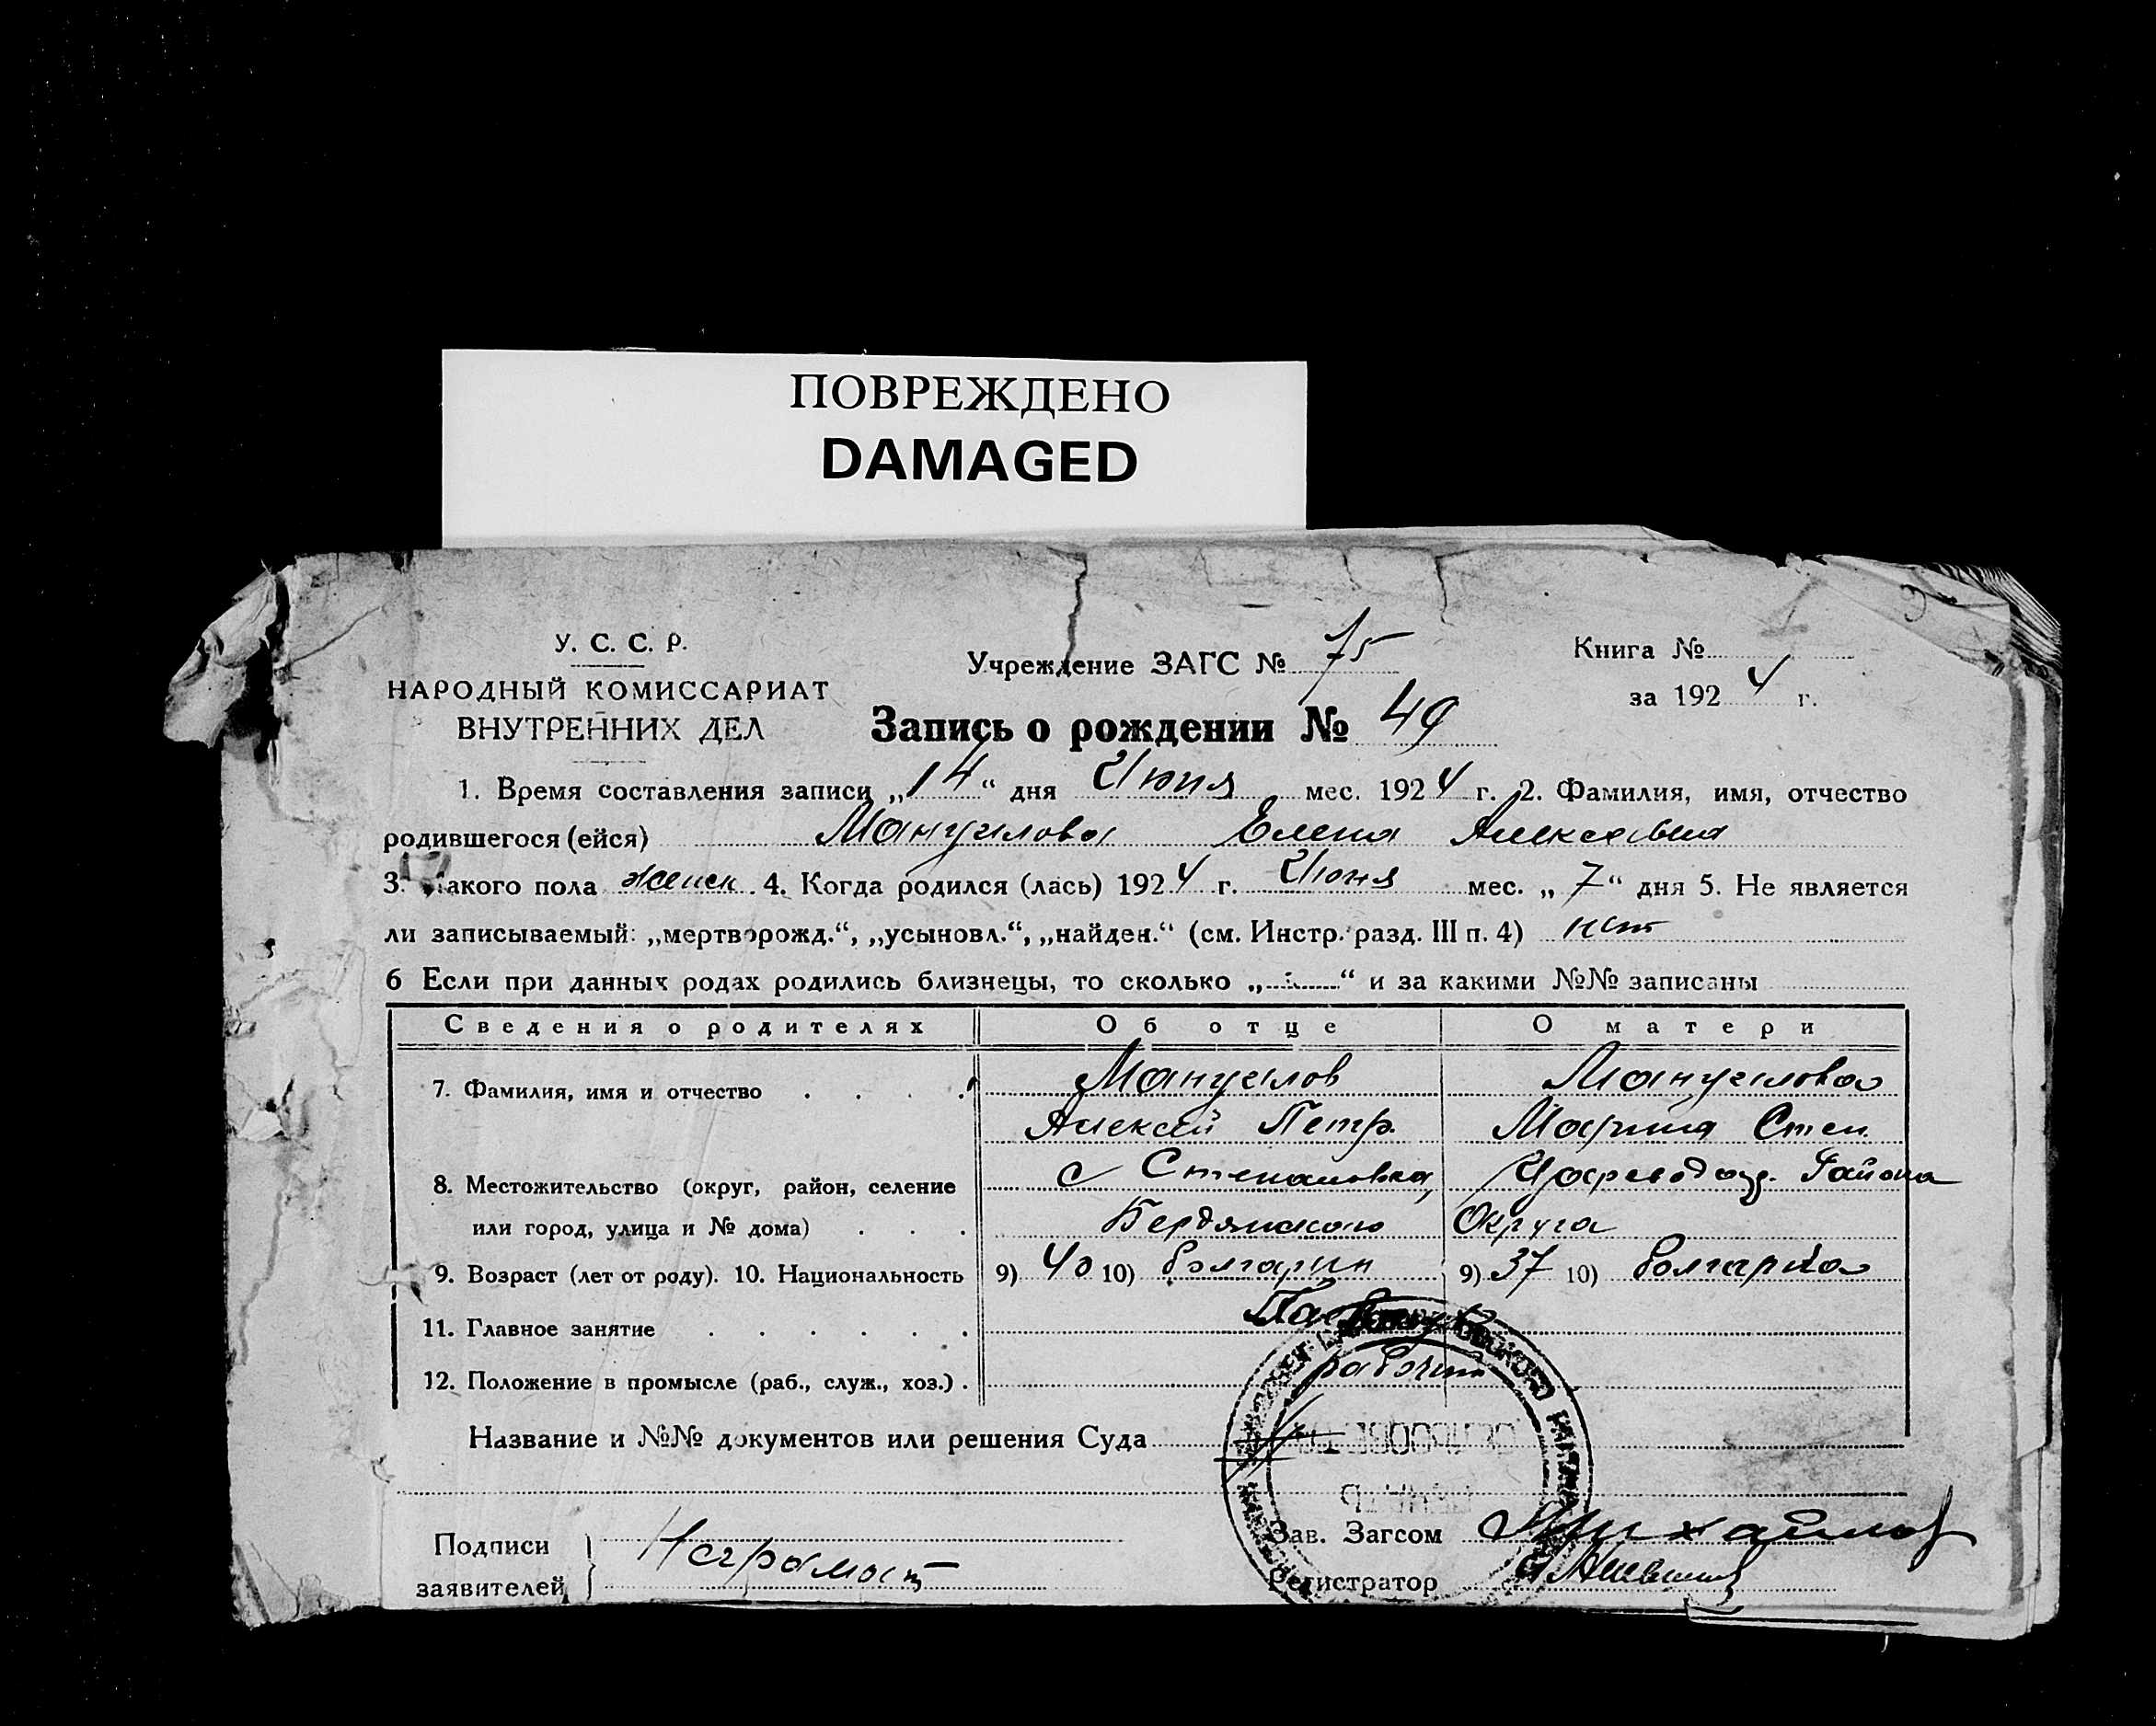 ПОВРЕЖДЕНО
DAMAGED
У. С. С. Р.
НАРОДНЫЙ КОМИССАРИАТ
ВНУТРЕННИХ ДЕЛ
Учреждение ЗАГС № 75
Книга №
за 1924 г.
Запись о рождении № 49
1. Время составления записи „14“ дня Июня мес. 1924 г. 2. Фамилия, имя, отчество
родившегося (ейся) Мануилова Елена Алексеевна
3. Какого пола женск. 4. Когда родился (лась) 1924 г. Июня мес. „7“ дня 5. Не является
ли записываемый: „мертворожд.“, „усыновл.“, „найден.“ (см. Инстр. разд. III п. 4) нет
6 Если при данных родах родились близнецы, то сколько „ “ и за какими №№ записаны
Сведения о родителях Об отце О матери
7. Фамилия, имя и отчество Мануилов Мануилова
Алексей Петр. Мария Степ.
8. Местожительство (округ, район, селение с Степановка, Цареводар. Района
или город, улица и № дома) Бердянского Округа
9. Возраст (лет от роду). 10. Национальность 9) 40 10) болгарин 9) 37 10) болгарка
11. Главное занятие
12. Положение в промысле (раб., служ., хоз.) рабочий
Название и №№ документов или решения Суда
Подписи
заявителей Неграмотн
Зав. Загсом Михайлов
Регистратор